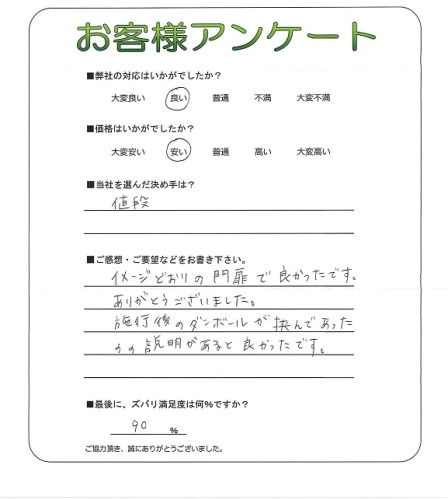 お客様アンケート
■弊社の対応はいかがでしたか？
大変良い 良い 普通 不満 大変不満
■価格はいかがでしたか？
大変安い 安い 普通 高い 大変高い
■当社を選んだ決め手は？
値段
■ご感想・ご要望などをお書き下さい。
イメージどおりの門扉で良かったです。
ありがとうございました。
施行後のダンボールが挟んであった
のの説明があると良かったです。
■最後に、ズバリ満足度は何％ですか？
90 ％
ご協力頂き、誠にありがとうございました。